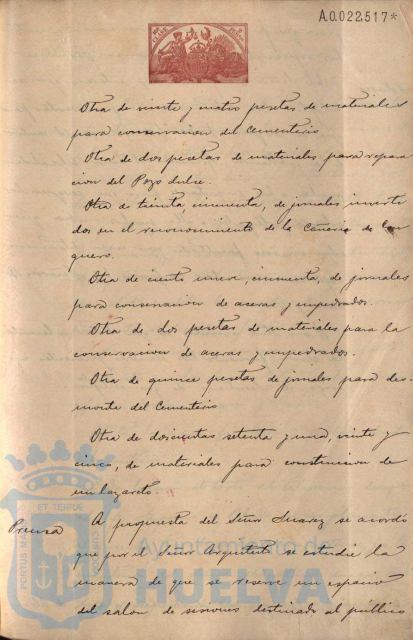 A.0.022.517*
Otra de veinte y cuatro pesetas de materiales
para conservacion del Cementerio
Otra de dos pesetas de materiales para repara
cion del Pozo dulce.
Otra de treinta, cincuenta, de jornales inverti
dos en el reconocimiento de la Cañeria de Con
quero.
Otra de ciento once, cincuenta, de jornales
para conservacion de aceras y empedrados.
Otra de dos pesetas de materiales para la
conservacion de aceras y empedrados.
Otra de quince pesetas de jornales para des
monte del Cementerio
Otra de doscientas setenta y una, veinte y
cinco, de materiales para construccion de
un lazareto.
Prensa
A propuesta del Señor Suarez se acordó
que por el Señor Arquitecto se estudie la
manera de que se reserve un espacio
del salon de sesiones destinado al público
Ayuntamiento de
HUELVA